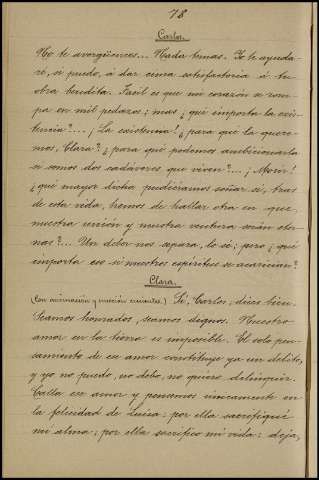 78
Carlos.
No te avergüences... Nada temas. Yo te ayuda-
ré, si puedo, á dar cima satisfactoria á tu
obra bendita. Fácil es que mi corazón se rom-
pa en mil pedazos; mas ¿qué importa la exis-
tencia?... ¡La existencia! ¿para qué la quere-
mos, Clara? ¿para qué podemos ambicionarla
si somos dos cadáveres que viven?... ¡Morir!
¿qué mayor dicha pudiéramos soñar si, tras
de esta vida, hemos de hallar otra en que
nuestra unión y nuestra ventura serán eter-
nas?... Un deber nos separa, lo sé; pero ¿qué
importa eso si nuestros espíritus se acarician?
Clara.
(Con animación y emoción crecientes.) Sí, Carlos, dices bien.
Seamos honrados, seamos dignos. Nuestro
amor en la tierra es imposible. El solo pen-
samiento de ese amor constituye ya un delito,
y yo no puedo, no debo, no quiero delinquir.
Calla ese amor y pensemos únicamente en
la felicidad de Luisa; por ella sacrifiqué
mi alma; por ella sacrifico mi vida: deja,